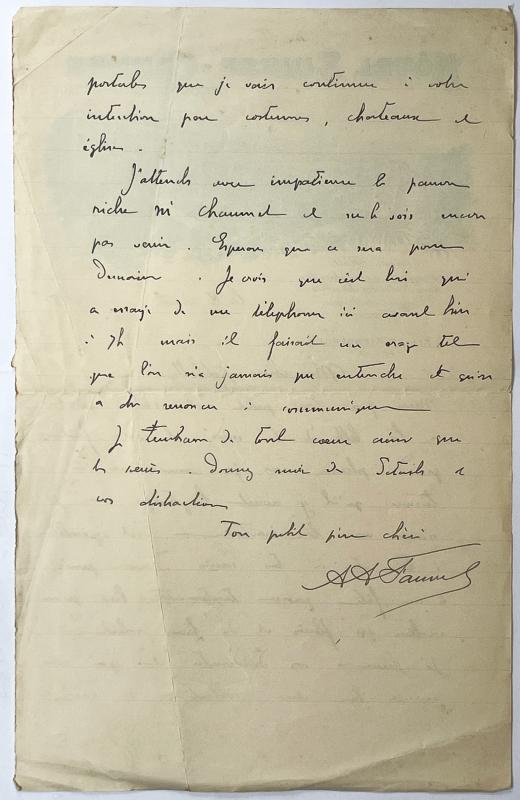 portables que je vais continuer à votre
intention pour costumes, chateaux et
églises.
J'attends avec impatience le pauvre
riche Mr Chaumet et ne le vois encore
pas venir. Esperons que ce sera pour
Dimanche. Je crois que c'est lui qui
a essayé de me téléphoner ici avant hier
à 7h mais il faisait un orage tel
que l'on n'a jamais pu entendre et qu'on
a du renoncer à communiquer
Je t'embrasse de tout coeur ainsi que
les . Donnez moi de details et
vos distractions
Ton petit père chéri